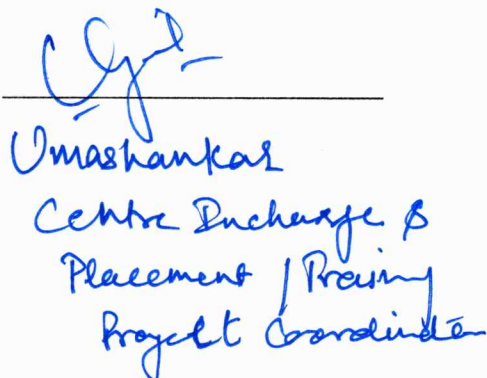 Umashankar
Centre Incharge &
Placement / Training
Project Coordinator